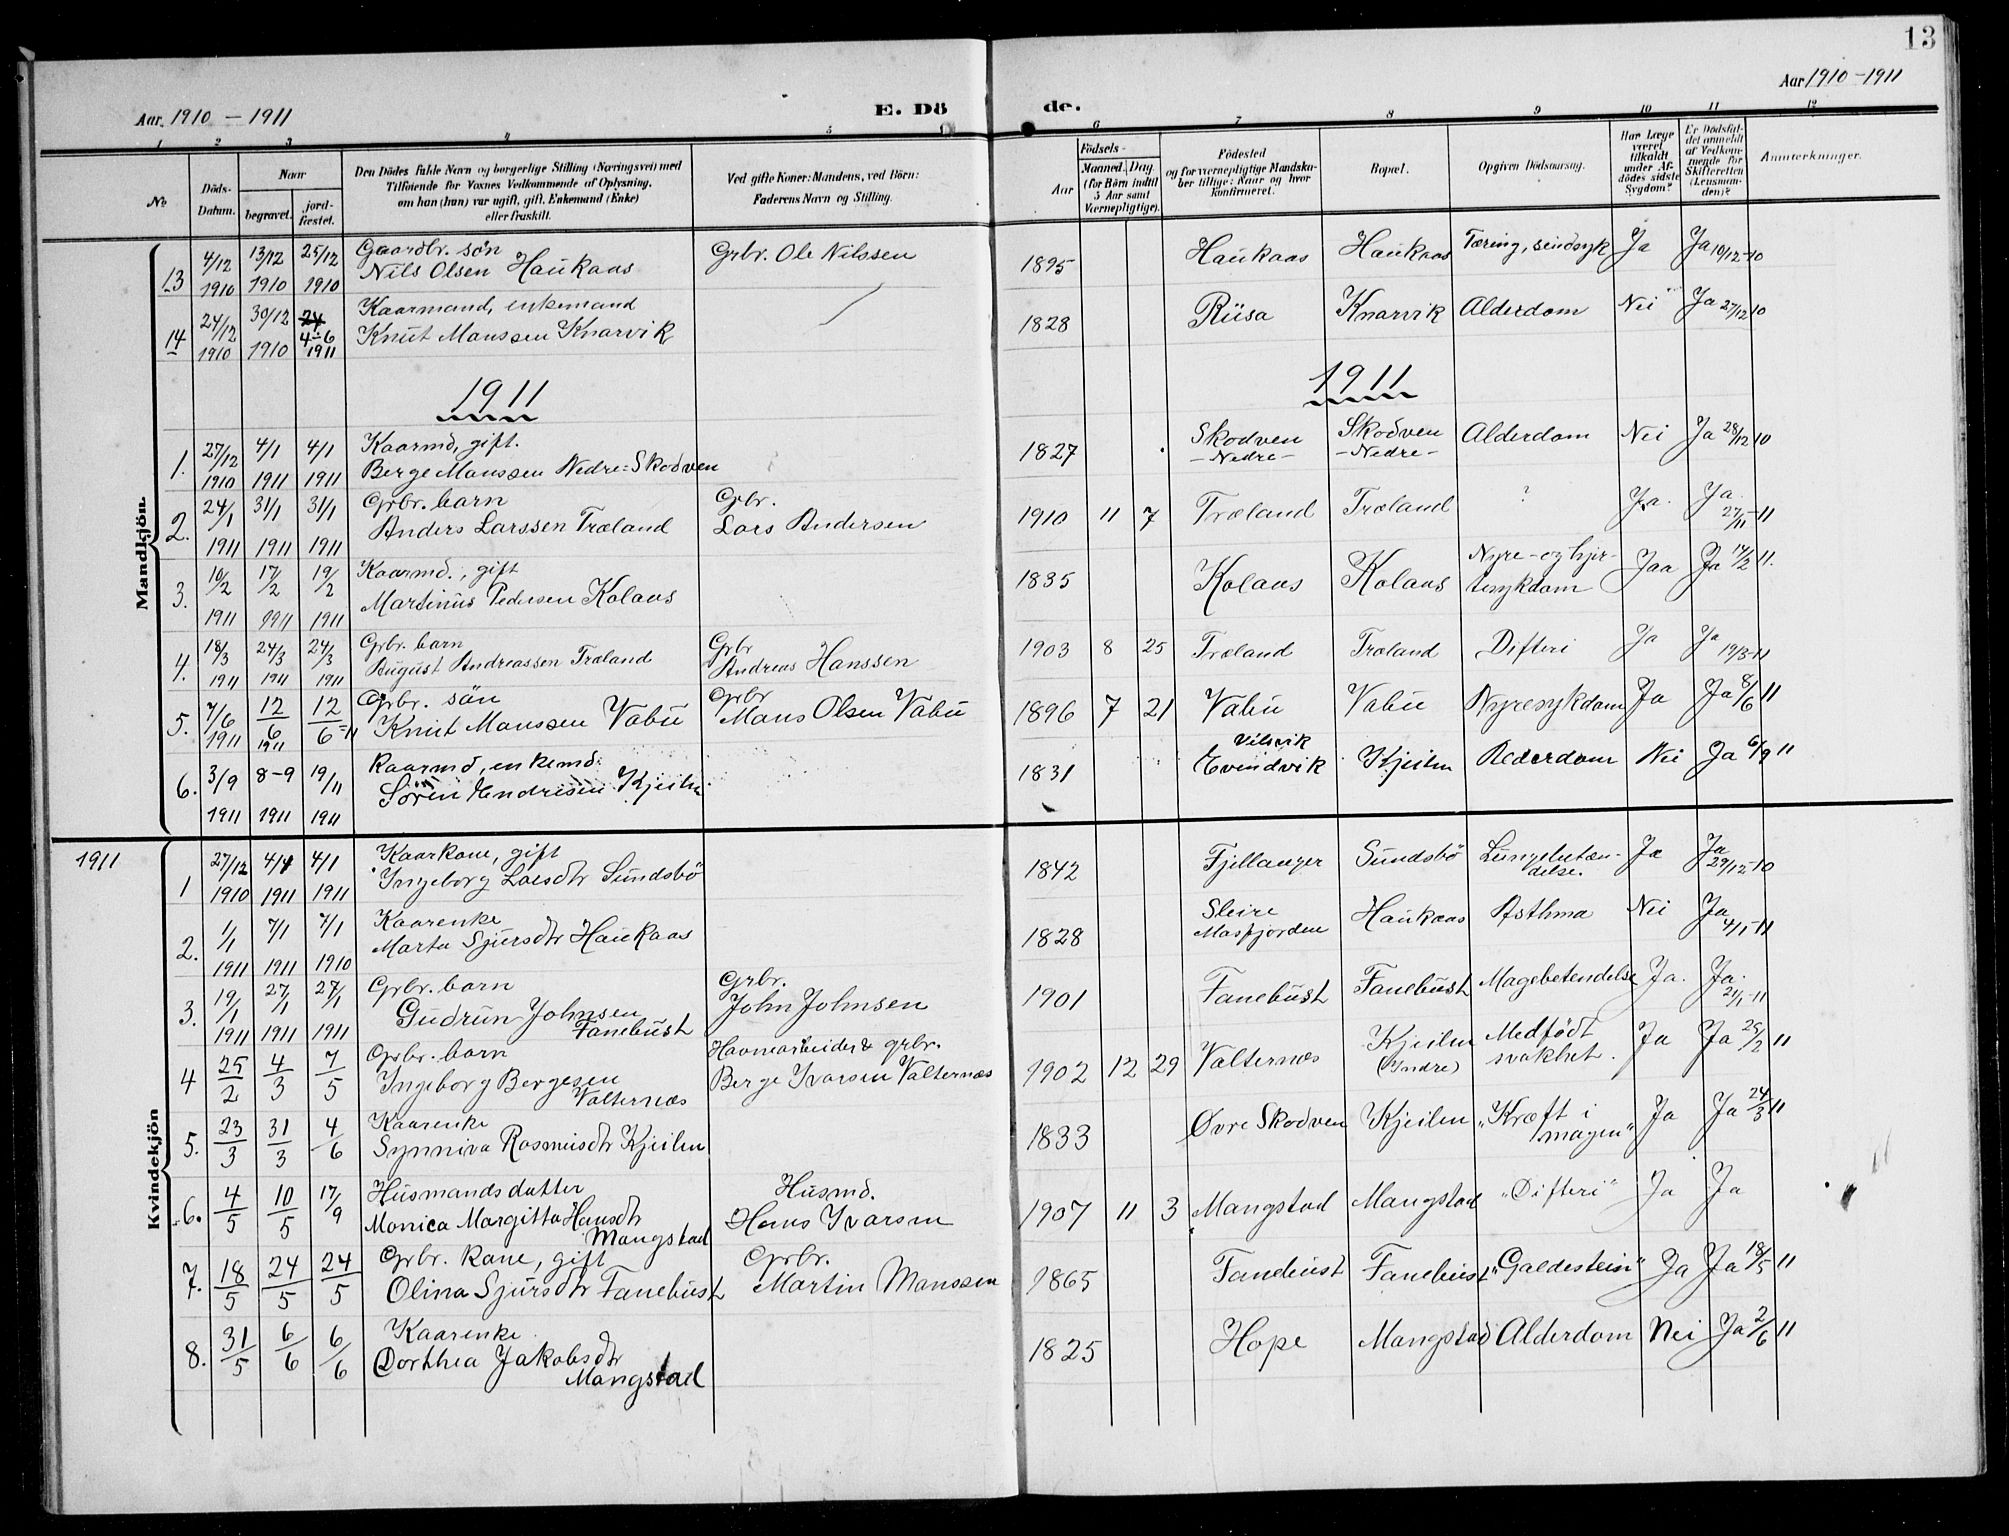 13
Aar 1910 – 1911
E. Dö
de.
Aar 1910 – 1911
1 2 3 4 5 6 7 8 9 10 11 12
No
Döds-Datum.
Naar
begravet.
jord-fæstet.
Den Dödes fulde Navn og borgerlige Stilling (Næringsvei) med
Tilföiende for Voxnes Vedkommende af Oplysning,
om han (hun) var ugift, gift, Enkemand (Enke)
eller fraskilt.
Ved gifte Koner: Mandens, ved Börn:
Faderens Navn og Stilling.
Födsels-
Aar
Maaned. Dag.
(for Börn indtil
5 Aar samt
Værnepligtige).
Födested
og for værnepligtige Mandska-
ber tillige: Naar og hvor
konfirmeret.
Bopæl.
Opgiven Dödsaarsag.
Har Læge
været
tilkaldt
under Af-
dödes sidste
Sygdom?
Er Dödsfal-
det anmeldt
af Vedkom-
mende for
Skifteretten
(Lensman-
den)?
Anmærkninger.
Mandkjön.
13 4/12 1910 13/12 1910 25/12 1910 Gaardbr. sön
Nils Olsen Haukaas Grbr. Ole Nilssen 1895 Haukaas Haukaas Tæring, sindsyk Ja Ja 10/12-10
14 24/12 1910 30/12 1910 24 4-6 1911 Kaarmand, enkemand
Knut Monssen Knarvik 1828 Riisa Knarvik Alderdom Nei Ja 27/12 10
1911
1911
1. 27/12 1910 4/1 1911 4/1 1911 Kaarmd, gift.
Berge Monssen Nedre=Skodven 1827 Skodven
– Nedre – Skodven
– Nedre – Alderdom Nei Ja 28/12 10
2. 24/1 1911 31/1 1911 31/1 1911 Grbr. barn
Anders Larssen Træland Grbr.
Lars Andersen 1910 11 7 Træland Træland ? Ja. Ja. 27/11-11
3. 10/2 1911 17/2 1911 19/2 1911 Kaarmd., gift
Martinus Pedersen Kolaas 1835 Kolaas Kolaas Nyre- og hjer-
tesykdom Jaa Ja 17/2 11.
4. 18/3 1911 24/3 1911 24/3 1911 Grbr. barn
August Andreassen Træland Grbr
Andreas Hanssen 1903 8 25 Træland Træland Difteri Ja Ja 19/3-11
5. 7/6 1911 12/6 1911 12/6-11 Grbr. sön
Knut Monssen Vabö Grbr
Mons Olsen Vabö 1896 7 21 Vabö Vabö Nyresykdom Ja Ja 8/6 11
6. 3/9 1911 8-9 1911 19/11 1911 Kaarmd, enkemd.
Sören Endresen Kjeilen 1831
Evindvik Kjeilen Alderdom Nei Ja 6/9 11
1911
Kvindekjön
1 27/12 1910 4/1 1911 4/1 1911 Kaarkone, gift
Ingeborg Larsdtr Sundsbö 1842 Fjellanger Sundsbö Lungebetæn-
delse. Ja Ja 29/12-10
2. 1/1 1911 7/1 1911 7/1 1910 Kaarenke
Marta Sjursdtr Haukaas 1828 Sleire
Masfjorden Haukaas Asthma Nei Ja 4/1-11
3. 19/1 1911 27/1 1911 27/1 1911 Grbr. barn
Gudrun Johnsen
Fanebust Grbr.
John Johnsen 1901 Fanebust Fanebust Magebetendelse Ja. Ja. 21/1-11
4 25/2 4/3 7/5 Grbr. barn
Ingeborg Bergesen
Valternæs Havnearbeider & grbr.
Berge Ivarsen Valternæs 1902 12 29 Valternæs Kjeilen
(Indre) Medfödt
svakhet. Ja Ja 25/2 11
5. 23/3 31/3 4/6 Kaarenke
Synniva Rasmusdtr Kjeilen 1833 Övre Skodven Kjeilen "Kræft i
magen" Ja Ja 24/3 11
6. 4/5 10/5 17/9 Husmandsdatter
Monica Margitta Hansdtr
Mangstad Husmd.
Hans Ivarsen 1907 11 3 Mangstad Mangstad "Difteri" Ja Ja
7. 18/5 24/5 24/5 Grbr. kone, gift
Olina Sjursdtr Fanebust Grbr.
Martin Monssen 1865 Fanebust Fanebust "Galdestein" Ja Ja 18/5 11
8. 31/5 6/6 6/6 Kaarenke
Dorthea Jakobsdtr
Mangstad 1825 Hope Mangstad Alderdom Nei Ja 2/6 11